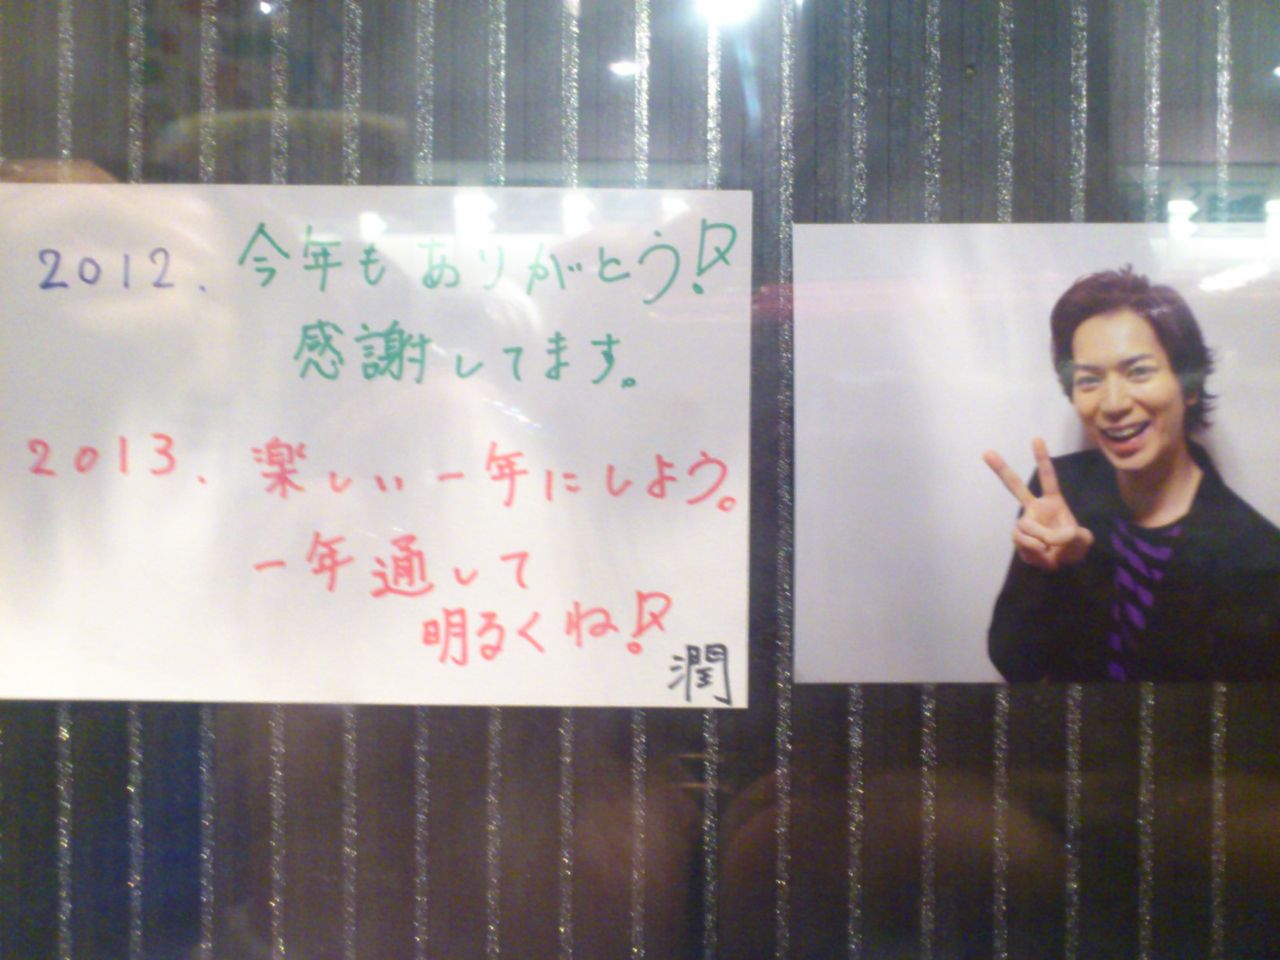 2012. 今年もありがとう!
感謝してます。
2013. 楽しい一年にしよう。
一年通して
明るくね!
潤